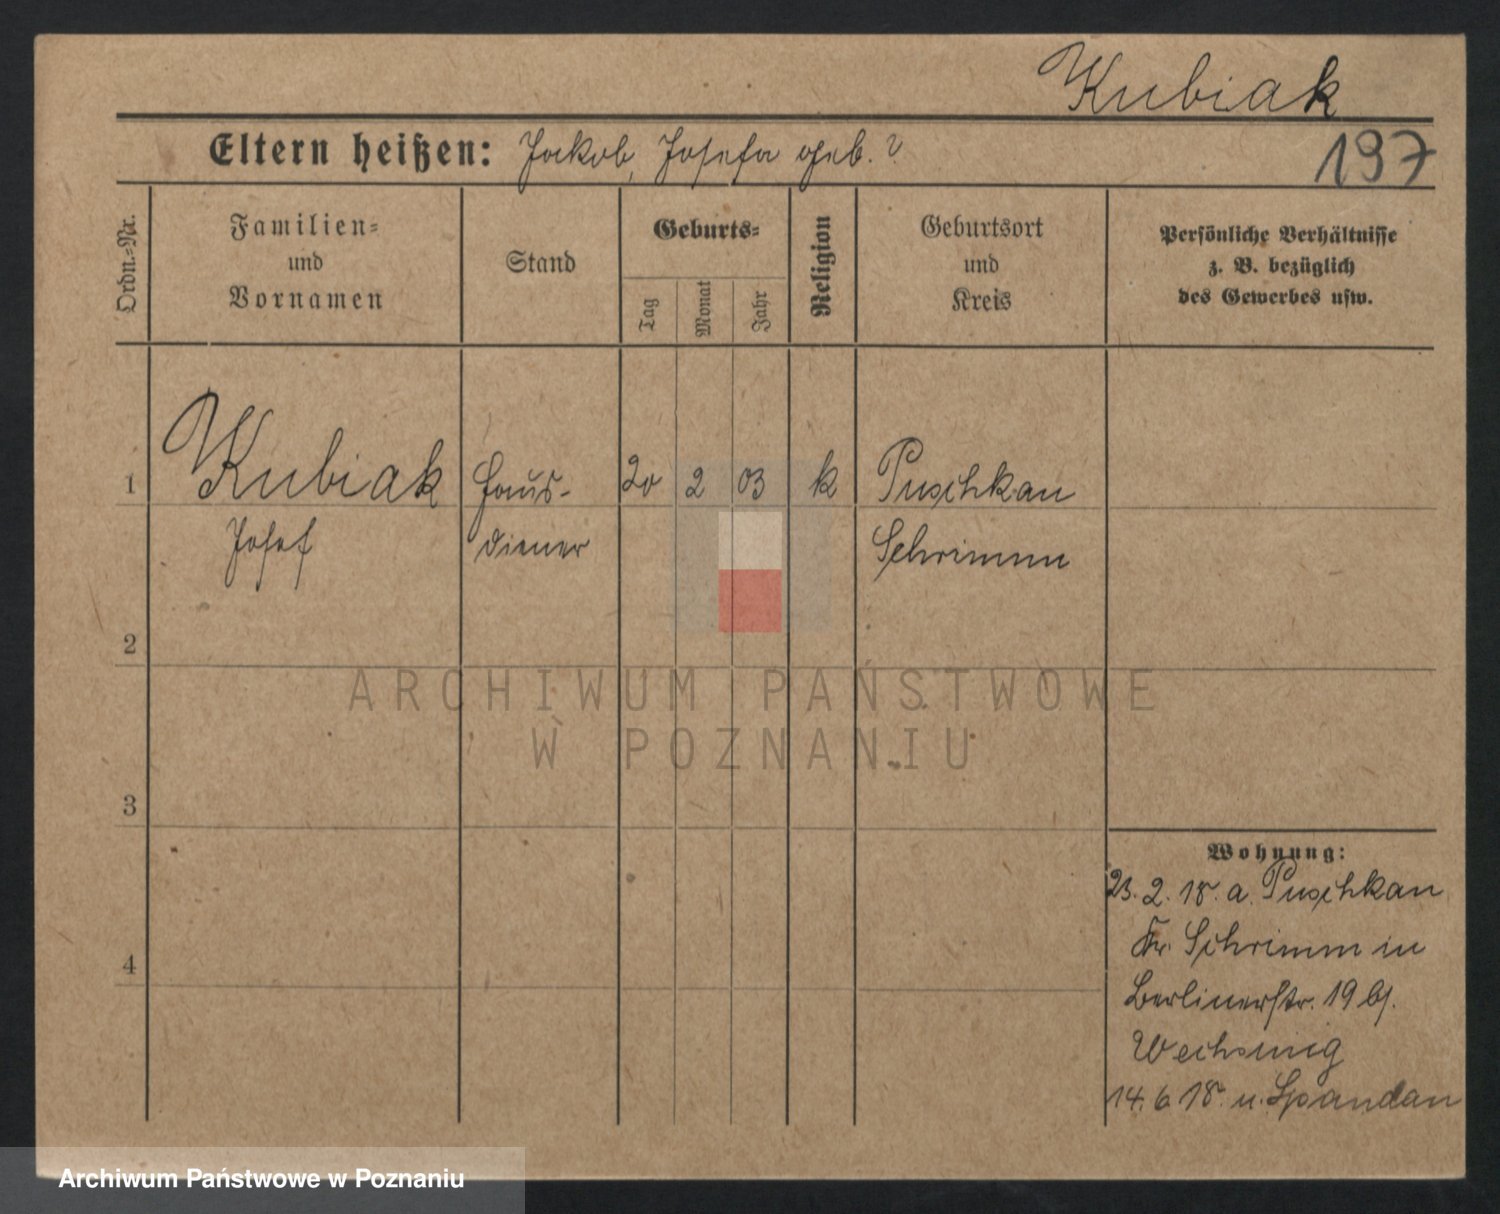 Kubiak
Eltern heißen: Jakob, Josefa geb. ?
197
Ordn.-Nr.
Familien-
und
Vornamen
Stand
Geburts-
Tag
Monat
Jahr
Religion
Geburtsort
und
Kreis
Persönliche Verhältnisse
z. B. bezüglich
des Gewerbes usw.
1
Kubiak
Josef
Haus-
diener
20
2
03
k
Puschkau
Schrimm
2
3
4
Wohnung:
23. 2. 18. a. Puschkau
Kr. Schrimm in
Berlinerstr. 19 b/.
14. 6. 18. n. Spandau
ARCHIWUM PAŃSTWOWE
W POZNANIU
Archiwum Państwowe w Poznaniu